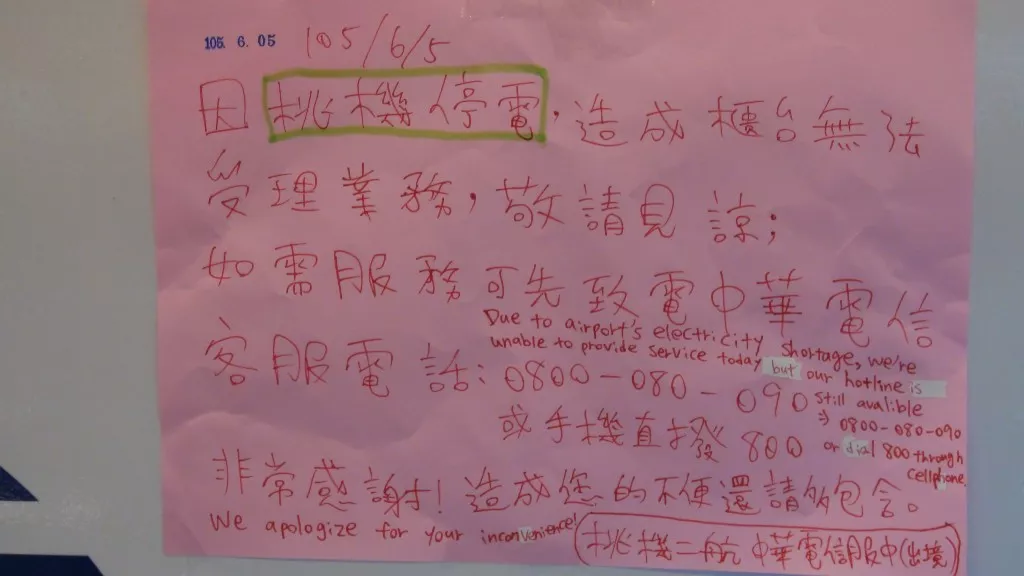 105. 6. 05 105/6/5
因桃機停電，造成櫃台無法
受理業務，敬請見諒；
如需服務可先致電中華電信
Due to airport's electricity shortage, we're
unable to provide service today but our hotline is
still avalible
客服電話：0800-080-090
⇒ 0800-080-090
或手機直撥 800
or dial 800 through
cellphone
非常感謝！造成您的不便還請多包含。
We apologize for your inconvenience!
(桃機二航中華電信服中(出境)